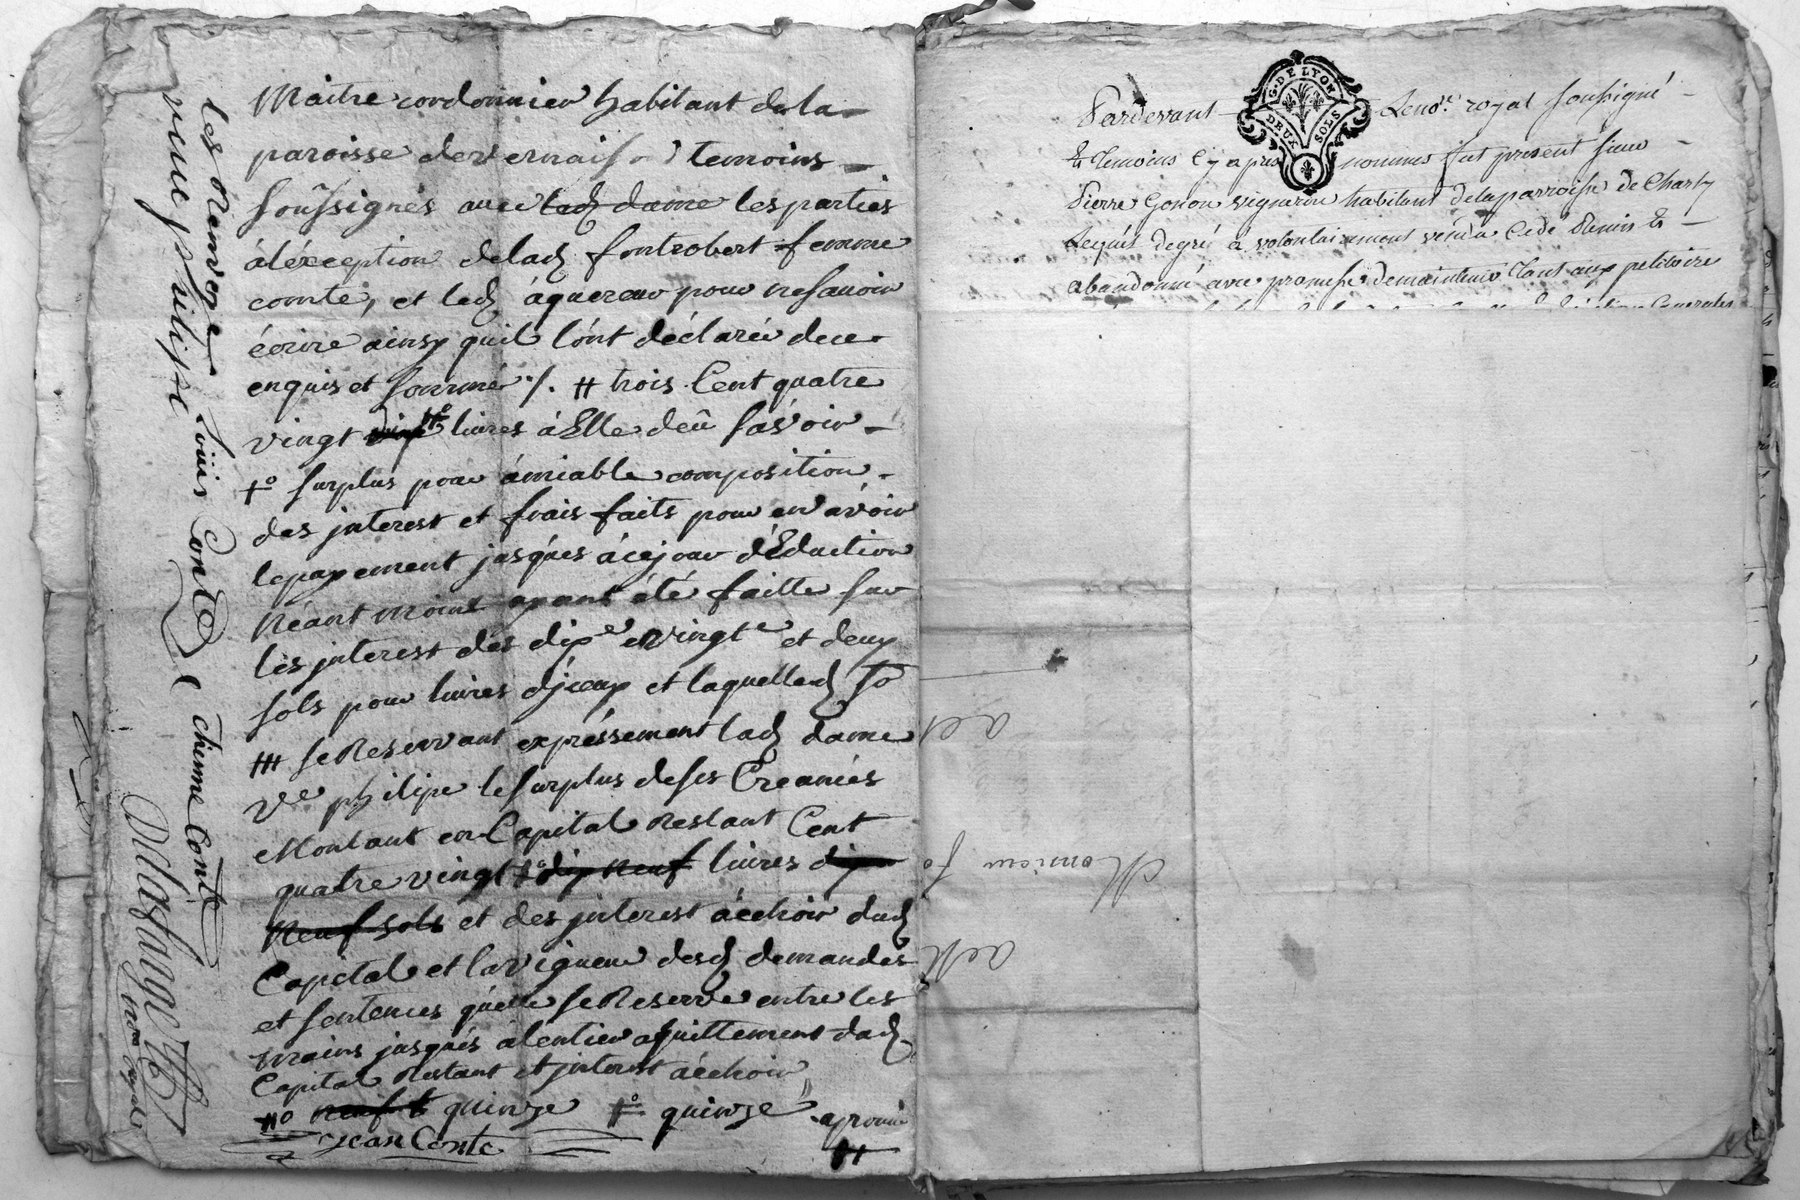 Maitre cordonnier habitant dela
paroisse devernaison temoins
soussignés avec lad dame les parties
áléxception delad fontrobert femme
comte, et led áquereur pour nesavoir
écrire ainsy quil lónt déclaréé dece
enquis et sommé ./. # trois Cent quatre
vingt livres áElle deû sávoir
surplus pour ámiable composition
des jnterest et frais faits pour en ávóir
lepayement jusqúes ácejour déduction
Néant moins ayant été faitte sur
les jnterest des dixe et vingte et deux
sols pour livres djceux et laquelle
se Reservant expréssément lad dame
ve philipe le surplus deses Creances
Montant en Capital Restant Cent
quatre vingt dix neuf livres dix
Neuf sols et des jnterest áéchoir dud
Capital et la vigueur desd demandes
et sentences quelle se Reserve entre les
mains jusqués álentier aquittement dud
Capital Restant et jnterest áéchoir
neuf quinze quinze aprouvé
Jean Conte
les Renvoye Loüis Conté Etienne Conté
veuve philipe
Delafayette
Nore Royal
G. DE LYON
DEUX SOLS
Pardevant Leno.re royal soussigné
& temoins cy apres nommés fut present sieur
Pierre Gonon vigneron habitant delaparroisse de Charly
Lequel degré á volontairement vendu Cedé Remis &
abandonné avec promesse demaintenir tant aux petitoire
act
Monsieur fo
act